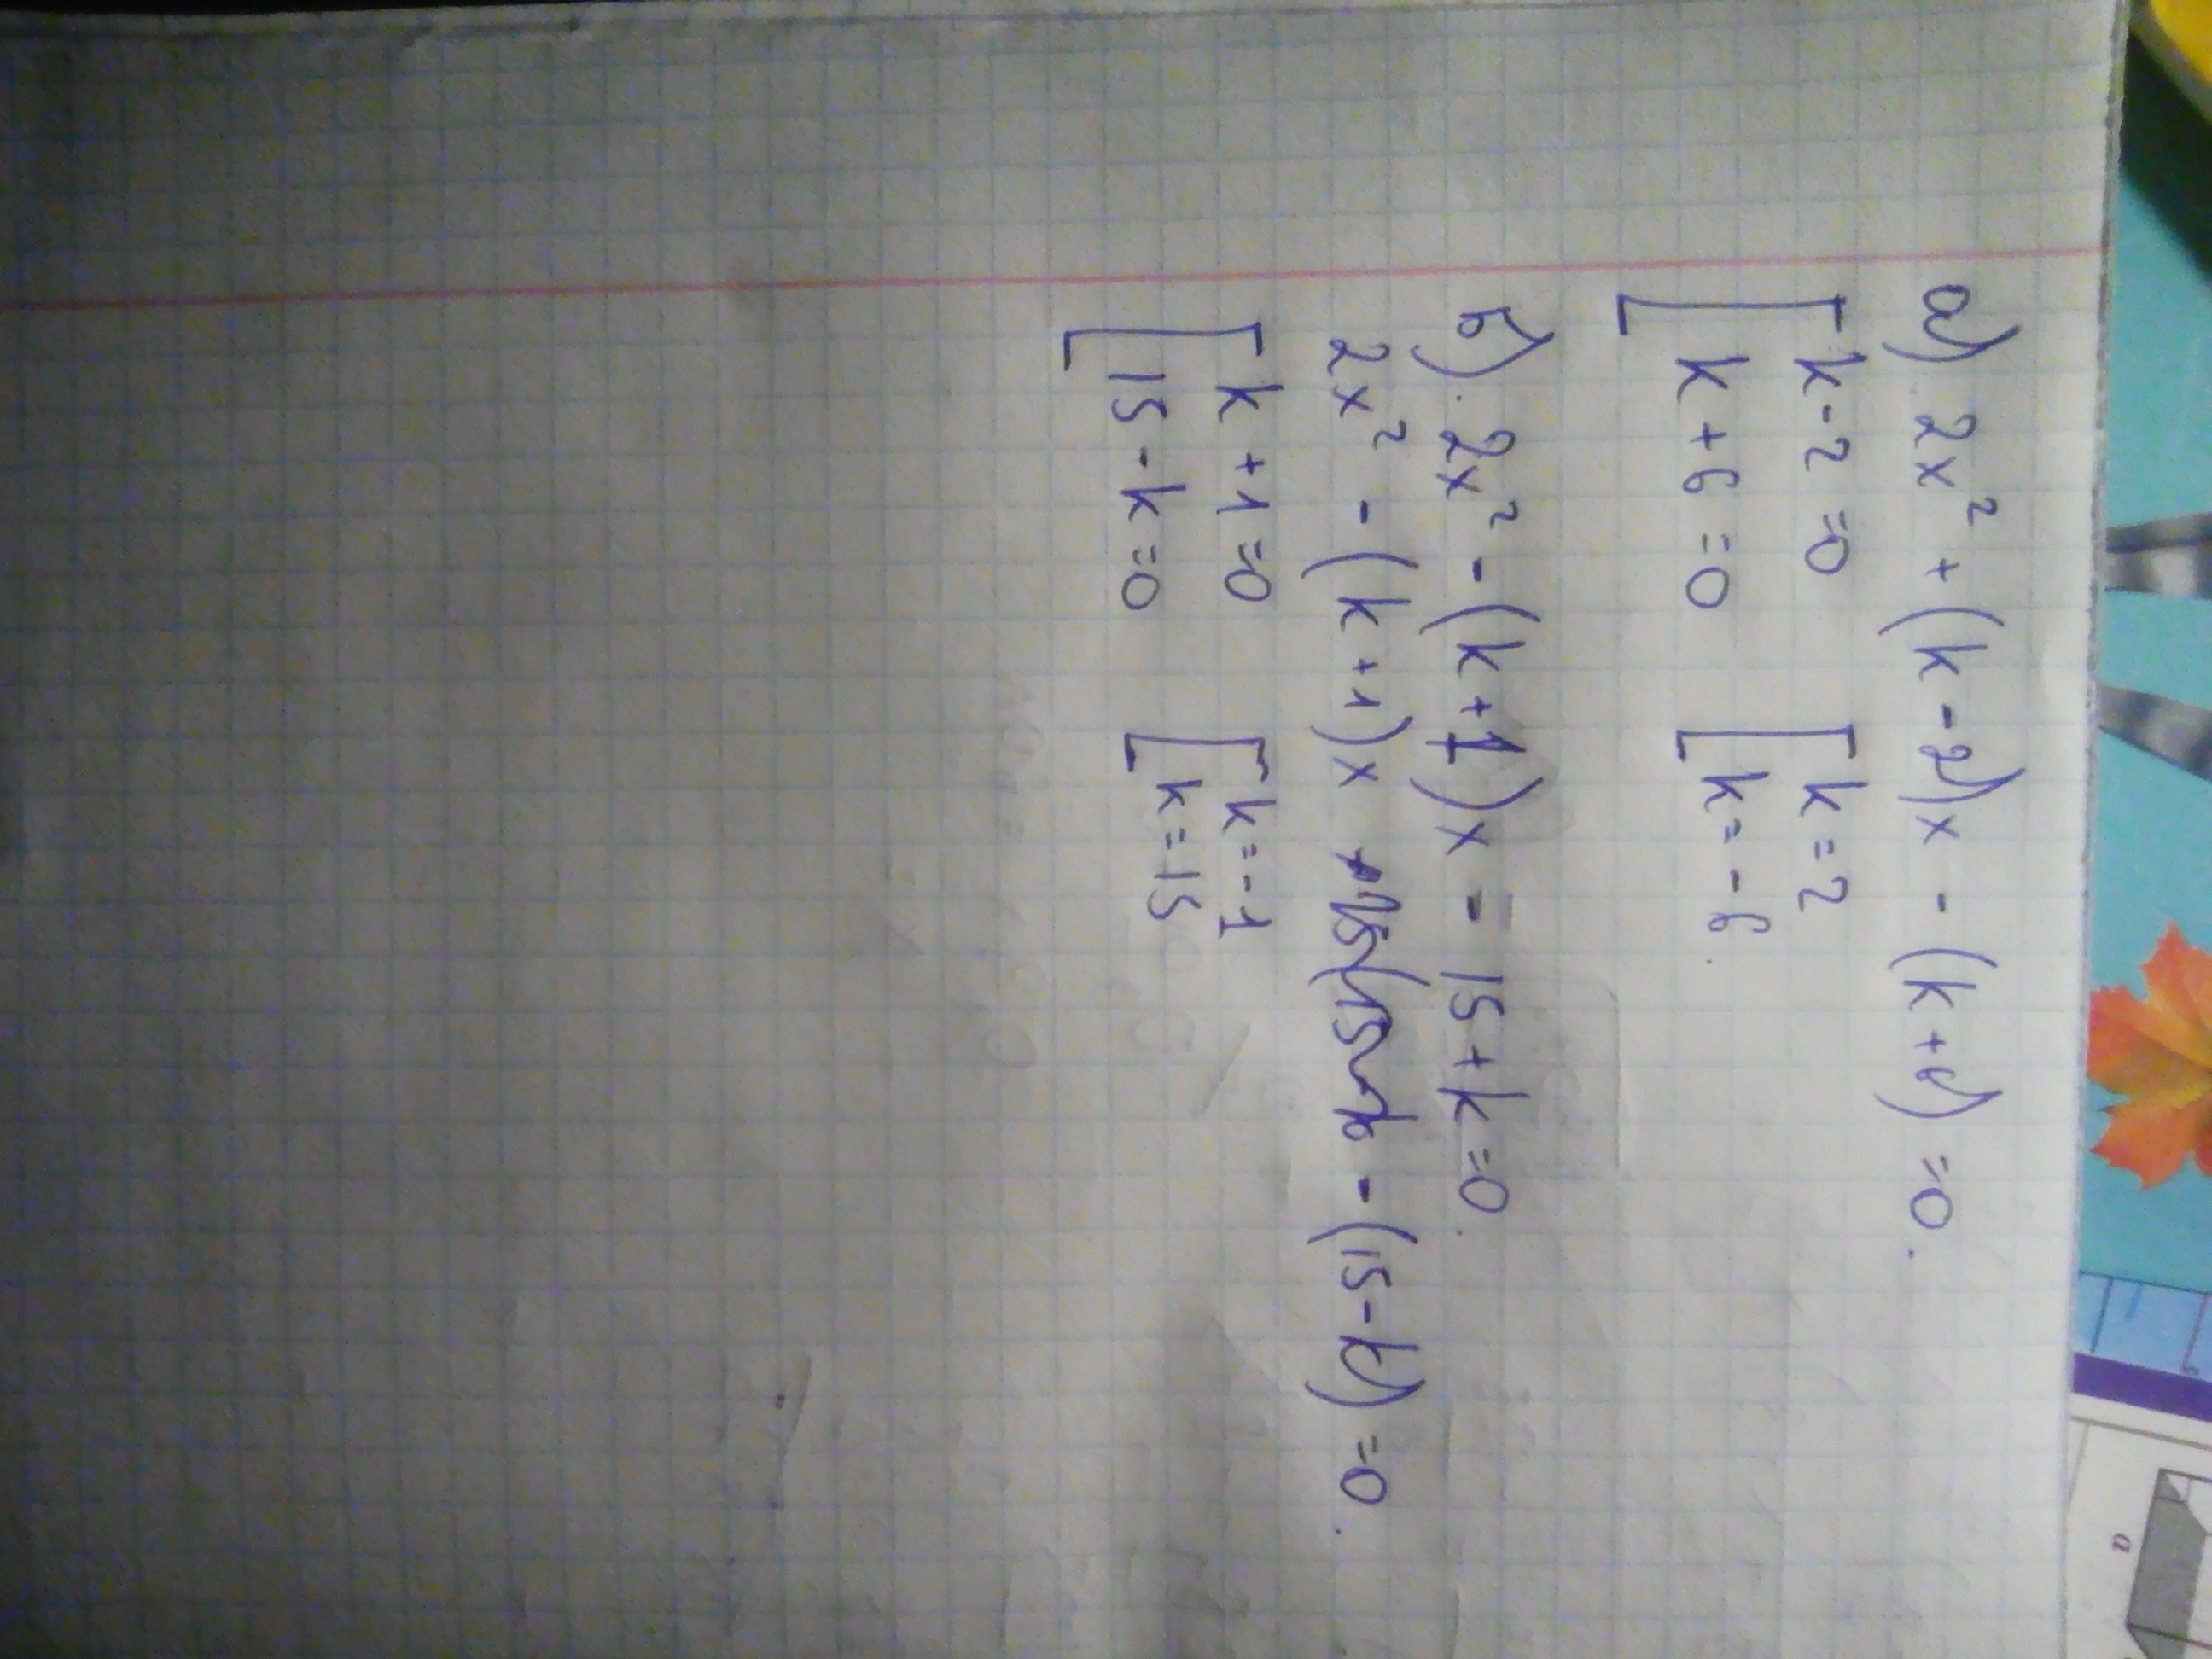 а) 2x² + (k-2)x - (k+6) = 0.
k-2=0 k=2
k+6=0 k=-6
б) 2x² - (k+1)x - 15+k=0.
2x² - (k+1)x - (15-k) =0.
k+1=0 k=-1
15-k=0 k=15